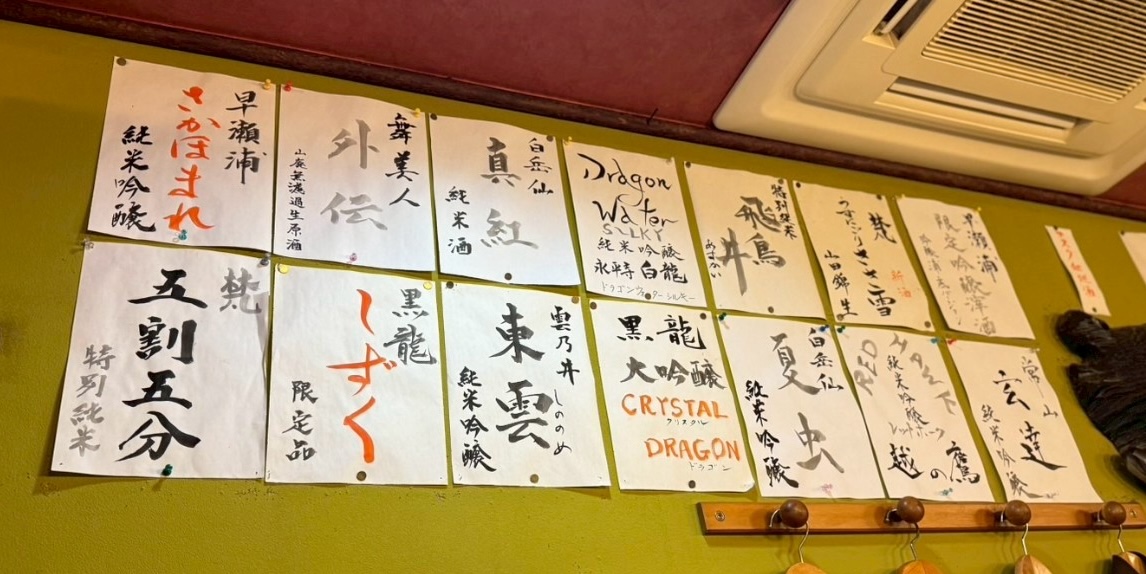 早瀬浦
さかほまれ
純米吟醸
舞美人
外伝
山廃無濾過生原酒
白岳仙
真紅
純米酒
Dragon
Water
SILKY
純米吟醸
永平寺白龍
ドラゴンウォーターシルキー
特別純米
飛鳥井
あすかい
梵
新酒
うすにごりささ雪
山田錦 生
早瀬浦
限定吟醸浮酒
梵
五割五分
特別純米
黒龍
しずく
限定品
雲乃井
しののめ
東雲
純米吟醸
黒龍
大吟醸
CRYSTAL
クリスタル
DRAGON
ドラゴン
白岳仙
夏虫
純米吟醸
RED
純米吟醸
レッドホーク
越の鷹
常山
玄達
純米吟醸